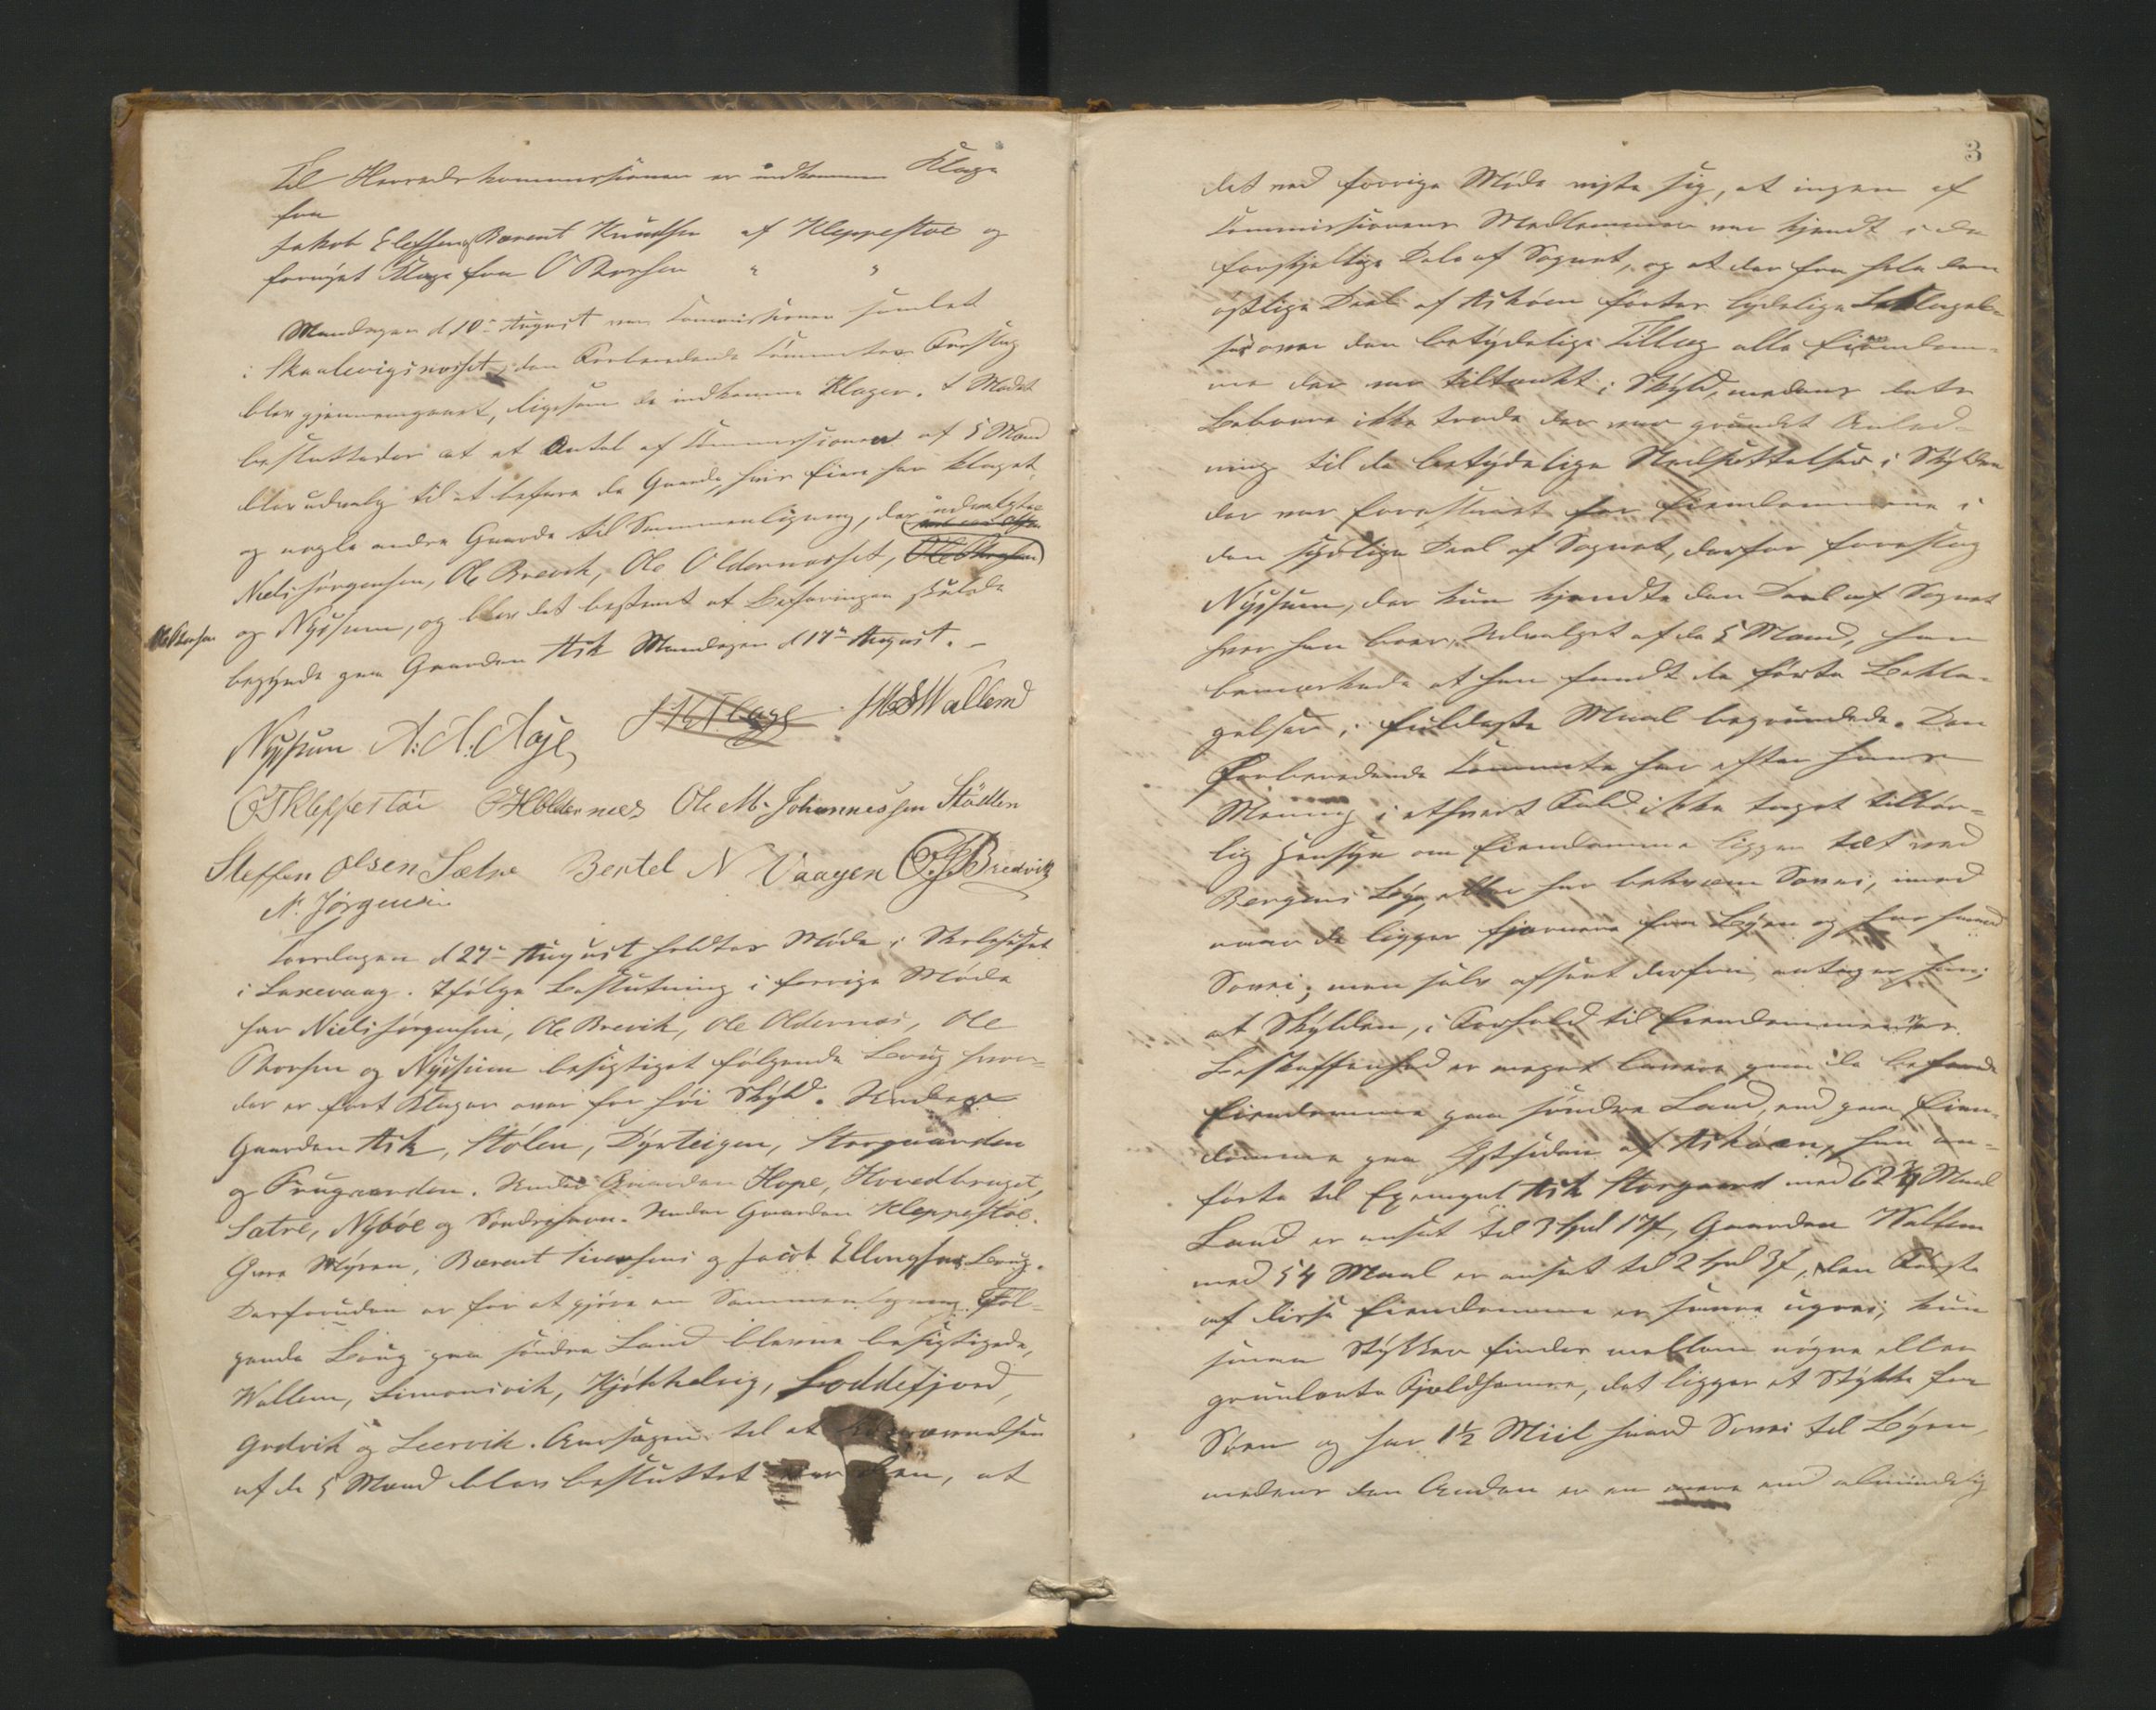 Til Herredskommissionen er indkommen Klage
fra
Jakob Elefsen, Barent Knudsen af Kleppestøe og
fornyet Klage fra O Thorsen " "
Mandagen d 10de August var Commissionen samlet
i Skaalevignæsset, den Forberedende Committes Forslag
blev gjennemgaaet, ligesom de indkomne Klager. I Mødet
besluttedes at et Antal af Commissionen af 5 Mand
blev udvalg til at befare de Gaarde, hvis Eiere har klaget
og nogle andre Gaarde til Sammenligning, der udvalgtes
Niels Jørgensen, Ole Brevik, Ole Oldernæsset,
Ole Thorsen og Nysum, og blev det bestemt at Befaringen skulde
begynde paa Gaarden Ask Mandagen d 17de August. –
Nysum A. A. Aase J M Wallem
O T Kleppestøe O H Oldernæs Ole M. Johannessen Stödlen
Steffen Olsen Sætre Bertel N Vaagen O. J. Bredvik
N. Jörgensen
Torsdagen d 27de August holdtes Møde i Skolehuset
i Laxevaag. Ifølge Beslutning i forrige Møde
har Niels Jørgensen, Ole Brevik, Ole Oldernæs, Ole
Thorsen og Nysum besigtiget følgende Brug hvor-
der er ført Klager over for høi Skyld. Under
Gaarden Ask, Stølen, Dyrteigen, Storgaarden
og Trugaarden. Under Gaarden Hope, Hovedbruget,
Sætre, Nybøe og Søndrehavn. Under Gaarden Kleppestøe
Myren, Barent Iversens og Jacob Ellingsens Brug.
Desforuden er for at gjøre en Sammenligning Føl-
gende Brug paa søndre Land blevne besigtigede,
Wallem, Simonsvik, Kjøkkelvig, Loddefjord,
Godvik og Leervik. Aarsagen til at
af de 5 Mand blev besluttet var den, at
3
det ved forrige Møde viste sig, at ingen af
Commissionens Medlemmer var kjendt i de
forskjellige Dele af Sognet, og at der fra hele den
østlige Deel af Askøen førtes lydelige Beklagel-
ser over den betydelige Tillæg alle Eiendom-
me der var tiltænkt i Skyld, medens dets
Beboere ikke troede der var grundet Anled-
ning til de betydelige Nedsættelser i Skylden
der var foreslaaet for Eiendommene i
den sydlige Deel af Sognet, derfor foreslog
Nysum, der kun kjendte den Deel af Sognet
hvor han boer, Udvalget af de 5 Mand, han
bemærkede at han fandt de førte Bekla-
gelser i fuldeste Maal begrundede. Den
Forberedende Committe har efter hans
Mening i ethvert Fald ikke taget tilbør-
lig Hensyn om Eiendomme ligger tæt ved
Bergens By, eller har bekvem Søvei, imod
naar de ligger fjernere fra Byen og har
Søvei; men selv afseet derfra antager han
at Skylden, i Forhold til Eiendommernes
Beskaffenhed er meget lavere paa de befarede
Eiendomme paa søndre Land, end paa Eien-
domme paa Østsiden af Askøen, han an-
førte til Exempel Ask Storgaard med 62 Maal
Land er ansat til 3 Spd 17 ß, Gaarden Wallem
med 54 Maal er ansat til 2 Spd 3 ß, den Første
af disse Eiendomme er svære ugrei, kun
smaa Stykker findes mellem nøgne eller
grunlænte Fjeldhamre, det ligger et Stykke fra
Søen og har 1½ Miil Søvei til Byen,
medens den Anden er en mere end almindelig